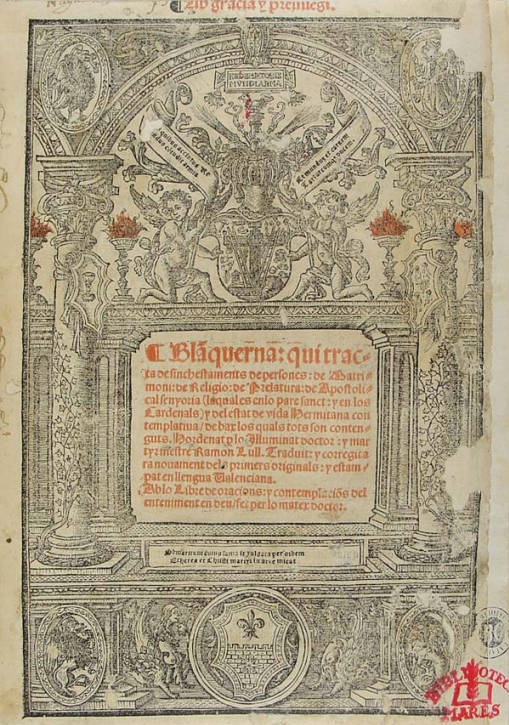 gracia y
MVNDI ANNA
Blãquerna: qui trac-
ta de sinch estaments de persones: de Matri-
moni: de Religio: de Prelatura: de Apostoli-
cal senyoria (laqual es en lo pare sanct: y en los
Cardenals) y del estat de vida Hermitana con
templativa / de bax los quals tots son conten-
guts. Hordenat p lo Illuminat doctor: y mar
tyr mestre Ramon Lull. Traduit: y corregit a
ra novament dels primers originals: y estam-
pat en llengua Valenciana.
Ab lo Libre de oracions: y contemplaciõs del
enteniment en deu / fet per lo matex doctor.
BIBLIOTEC
MARES